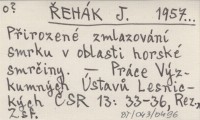 o? ŘEHÁK J. 1957...
Přirozené zmlazování
smrku v oblasti horské
smrčiny. — Práce Výz-
kumných Ústavů Lesnic-
kých ČSR 13: 33-36, Rez.,
2 Sf.
87/043/0496